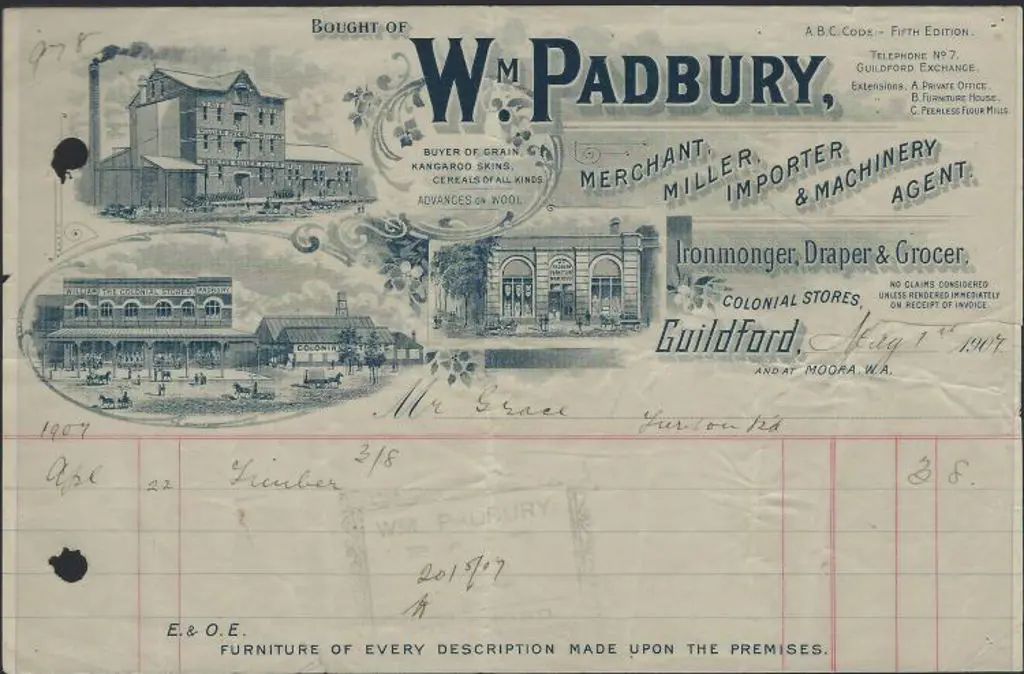 978
BOUGHT OF
WM PADBURY,
A.B.C. CODE - FIFTH EDITION.
TELEPHONE No 7.
GUILDFORD EXCHANGE.
Extensions, A. PRIVATE OFFICE.
" B. FURNITURE HOUSE.
" C. PEERLESS FLOUR MILLS.
BUYER OF GRAIN,
KANGAROO SKINS,
CEREALS OF ALL KINDS
ADVANCES ON WOOL
MERCHANT,
MILLER,
IMPORTER
& MACHINERY
AGENT.
Ironmonger, Draper & Grocer,
COLONIAL STORES,
NO CLAIMS CONSIDERED
UNLESS RENDERED IMMEDIATELY
ON RECEIPT OF INVOICE.
Guildford, May 1st 1907
AND AT MOORA. W.A.
WILLIAM THE COLONIAL STORES PADBURY
COLONIAL
Mr Grace
1907
Apl 22 Timber 3/8 3 8
WM. PADBURY
20/5/07
E. & O. E.
FURNITURE OF EVERY DESCRIPTION MADE UPON THE PREMISES.